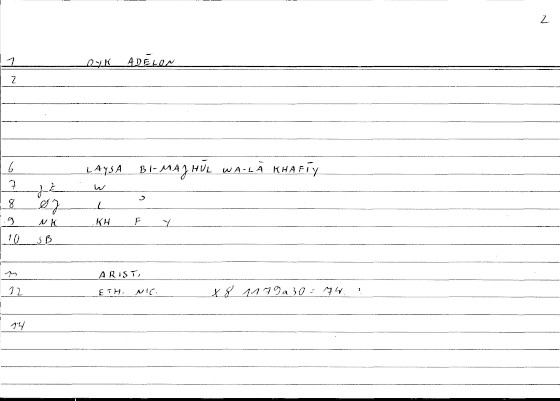 2
1 OYK ADĒLON
2
6 LAYSA BI-MAJHŪL WA-LĀ KHAFĪY
7 JZ W
8 ØJ L
9 NK KH F Y
10 SB
11 ARIST.
12 ETH. NIC. X8 1179a30 = 74.
14